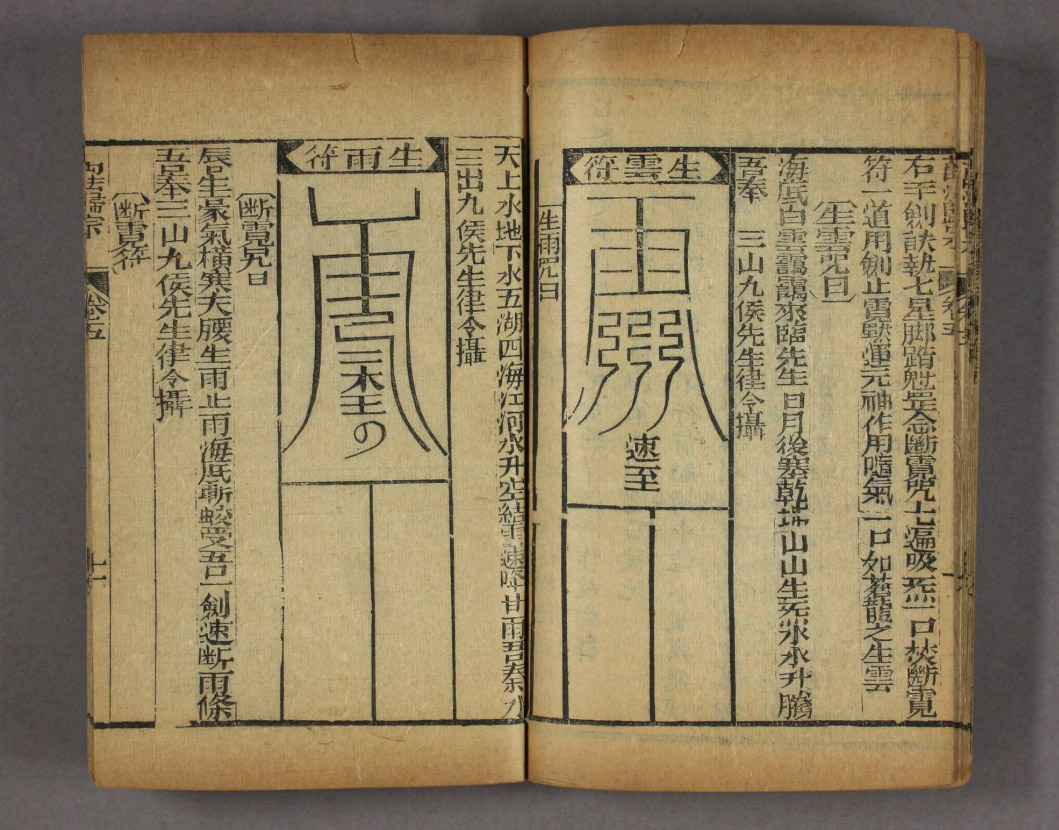 右手劍訣執七星脚踏魁罡念斷霓咒七遍吸炁一口焚斷霓
符一道用劍止霓默運元神作用噓氣一口如蒼龍之生雲
生雲咒曰
海底白雲靄靄來臨先生日月後塞乾坤山山生炁水水升騰
吾奉 三山九侯先生律令攝
生雲符
速至
生雨咒曰
天上水地下水五湖四海江河水升空結雲速降甘雨吾奉
三山九侯先生律令攝
生雨符
断霓咒曰
唇吞生彖氣橫寒天腰生雨止雨海底斬蛟受吾一劍速断雨條
吾奉三山九侯先生律令攝
断霓符
萬法歸宗
卷五